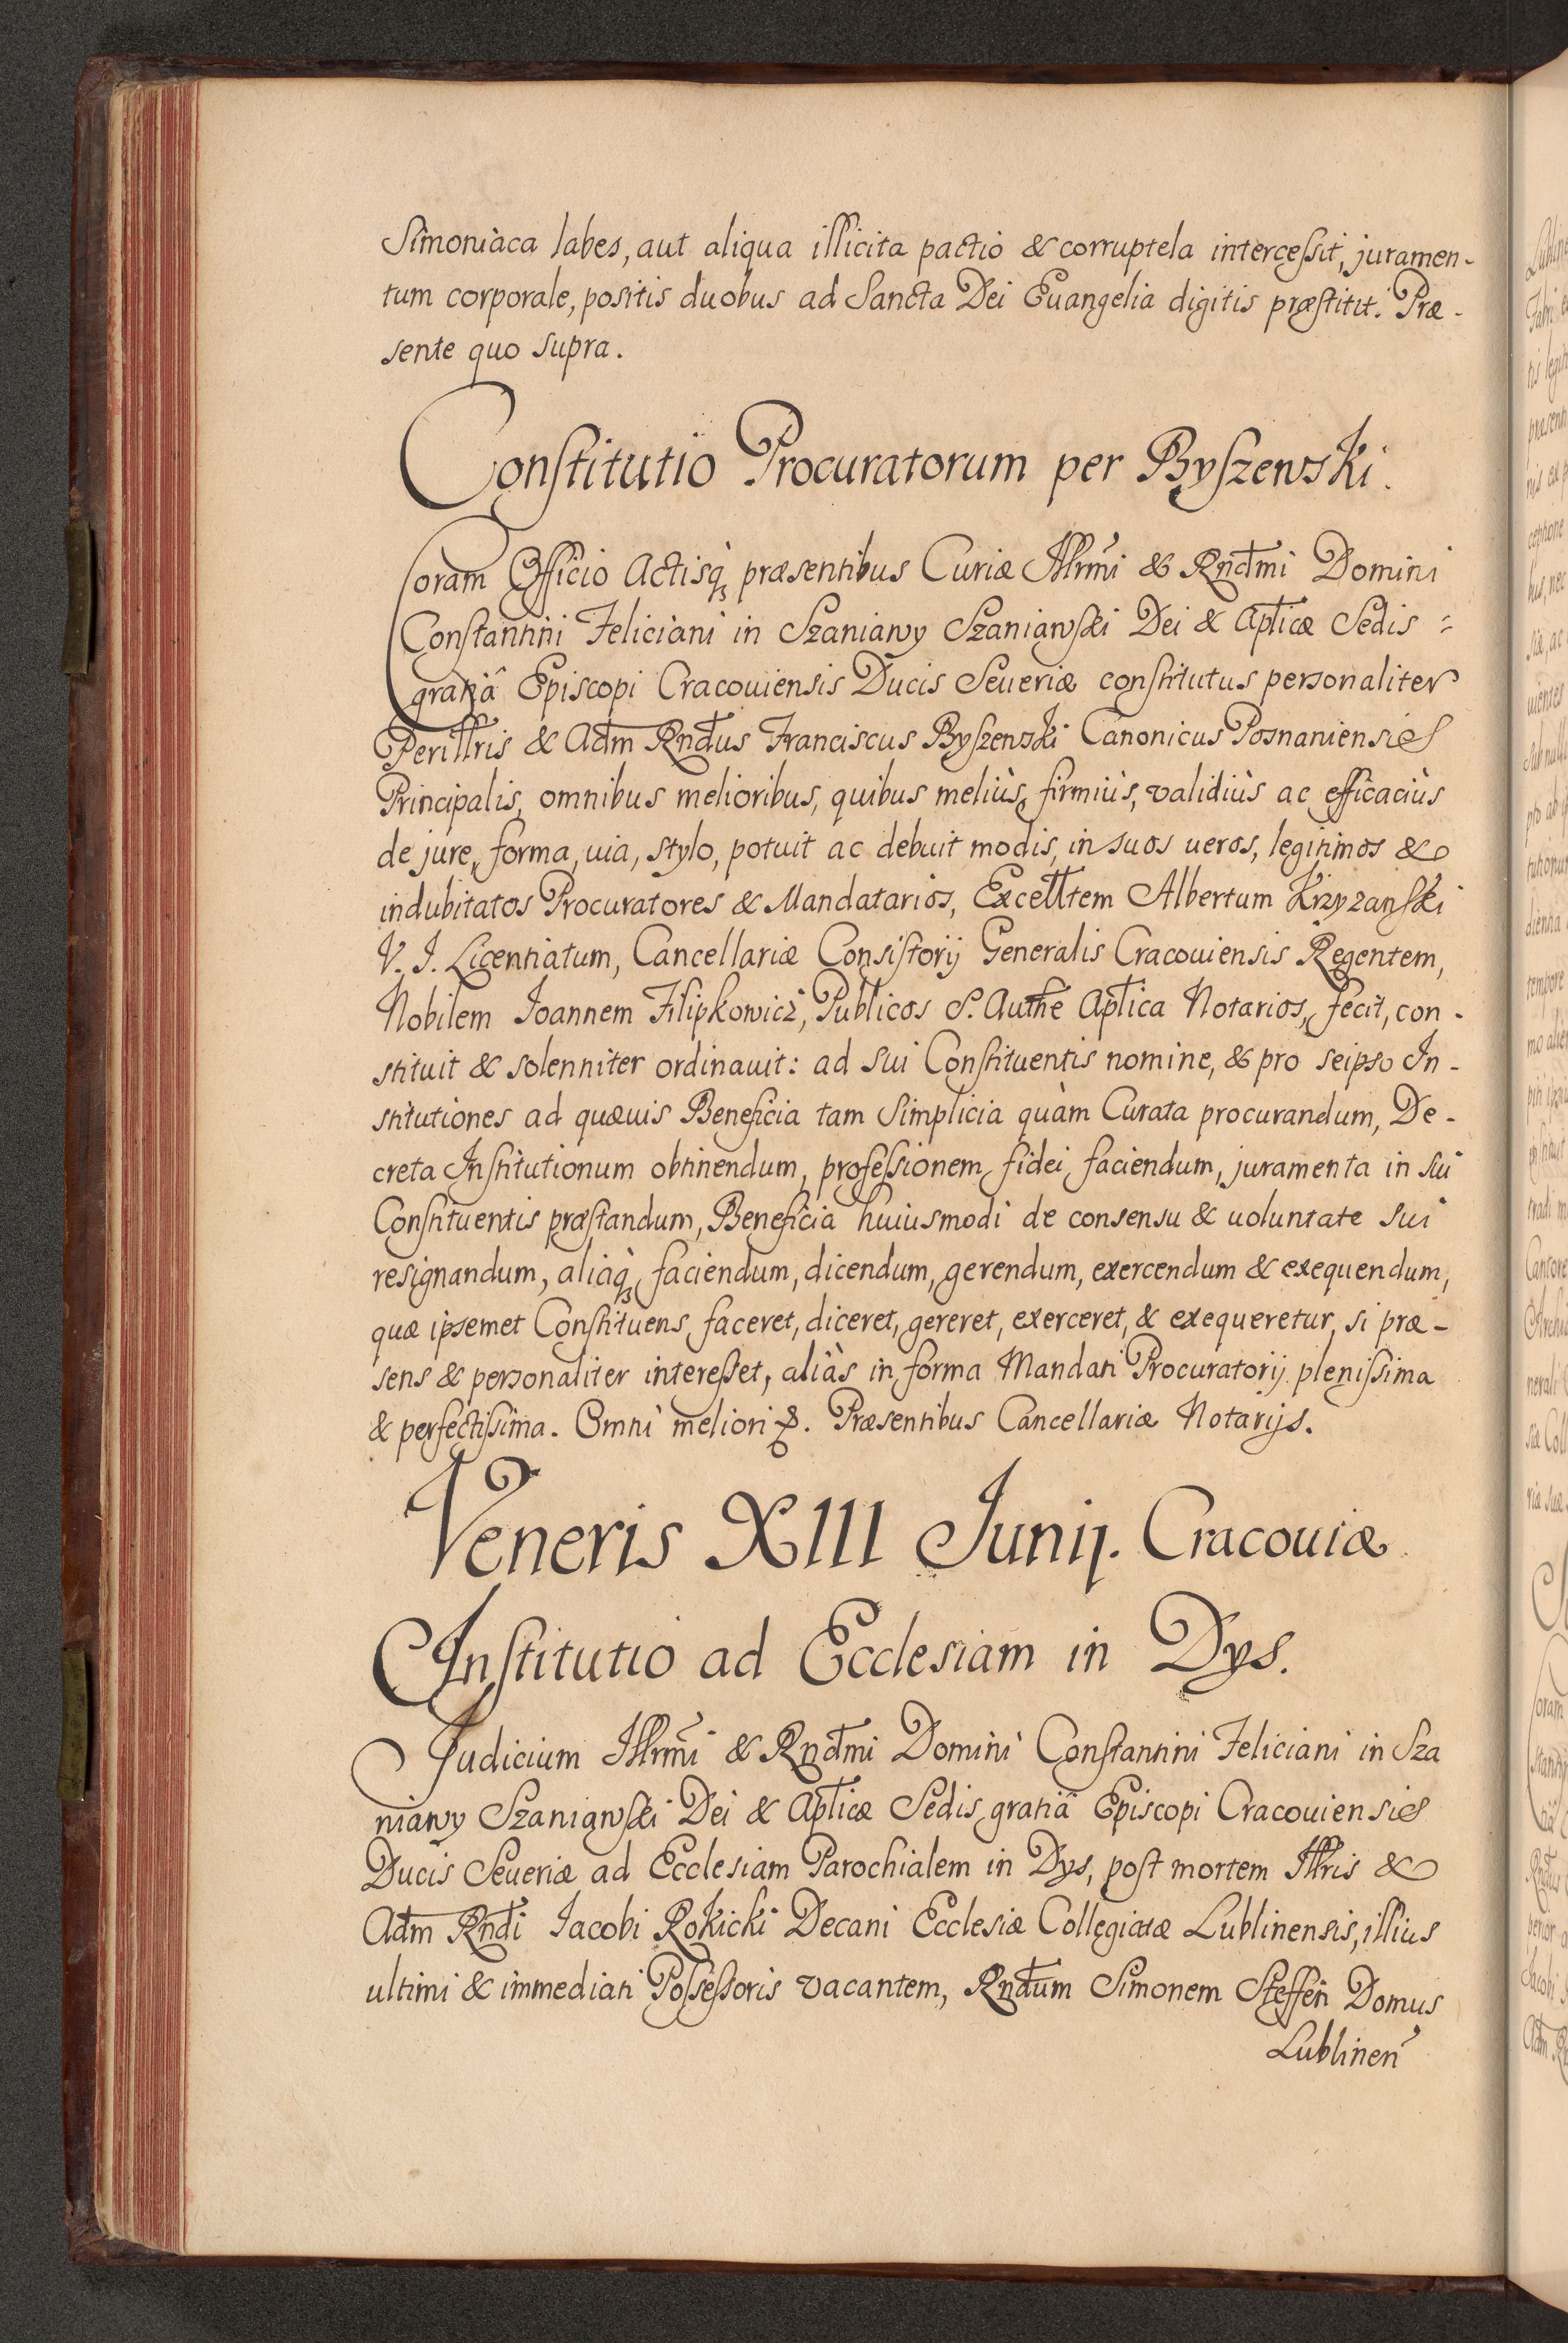 Simoniaca labes, aut aliqua illicita pactio & corruptela intercessit, juramen-
tum corporale, positis duobus ad Sancta Dei Euangelia digitis præstitit. Præ-
sente quo supra.
Constitutio Procuratorum per Byszewski.
Coram Officio Actisq; præsentibus Curiæ Illrmi & Rndmi Domini
Constantini Feliciani in Szaniawy Szaniawski Dei & Aplicæ Sedis
gratiâ Episcopi Cracouiensis Ducis Seueriæ constitutus personaliter
Perillris & Adm Rndus Franciscus Byszewski Canonicus Posnaniensis
Principalis, omnibus melioribus, quibus meliùs, firmiùs, validiùs ac efficaciùs
de jure, forma, uia, stylo, potuit ac debuit modis, in suos ueros, legitimos &
indubitatos Procuratores & Mandatarios, Excelltem Albertum Krzyzanski
V. J. Licentiatum, Cancellariæ Consistorij Generalis Cracouiensis Regentem,
Nobilem Joannem Filipkowicz, Publicos S. Authe Aplica Notarios, fecit, con-
stituit & solenniter ordinauit: ad sui Constituentis nomine, & pro seipso In-
stitutiones ad quæuis Beneficia tam simplicia quàm Curata procurandum, De-
creta Institutionum obtinendum, professionem fidei faciendum, juramenta in sui
Constituentis præstandum, Beneficia huiusmodi de consensu & uoluntate sui
resignandum, aliaq; faciendum, dicendum, gerendum, exercendum & exequendum,
quæ ipsemet Constituens faceret, diceret, gereret, exerceret, & exequeretur, si præ-
sens & personaliter interesset, aliàs in forma Mandati Procuratorij plenissima
& perfectissima. Omni meliori &. Præsentibus Cancellariæ Notarijs.
Veneris XIII Junij. Cracouiæ
Institutio ad Ecclesiam in Dys.
Judicium Illrmi & Rndmi Domini Constantini Feliciani in Sza
niawy Szaniawski Dei & Aplicæ Sedis gratiâ Episcopi Cracouiensis
Ducis Seueriæ ad Ecclesiam Parochialem in Dys, post mortem Illris &
Adm Rndi Jacobi Rokicki Decani Ecclesiæ Collegiatæ Lublinensis, illius
ultimi & immediati Possessoris vacantem, Rndum Simonem Steffen Domus
Lublinen